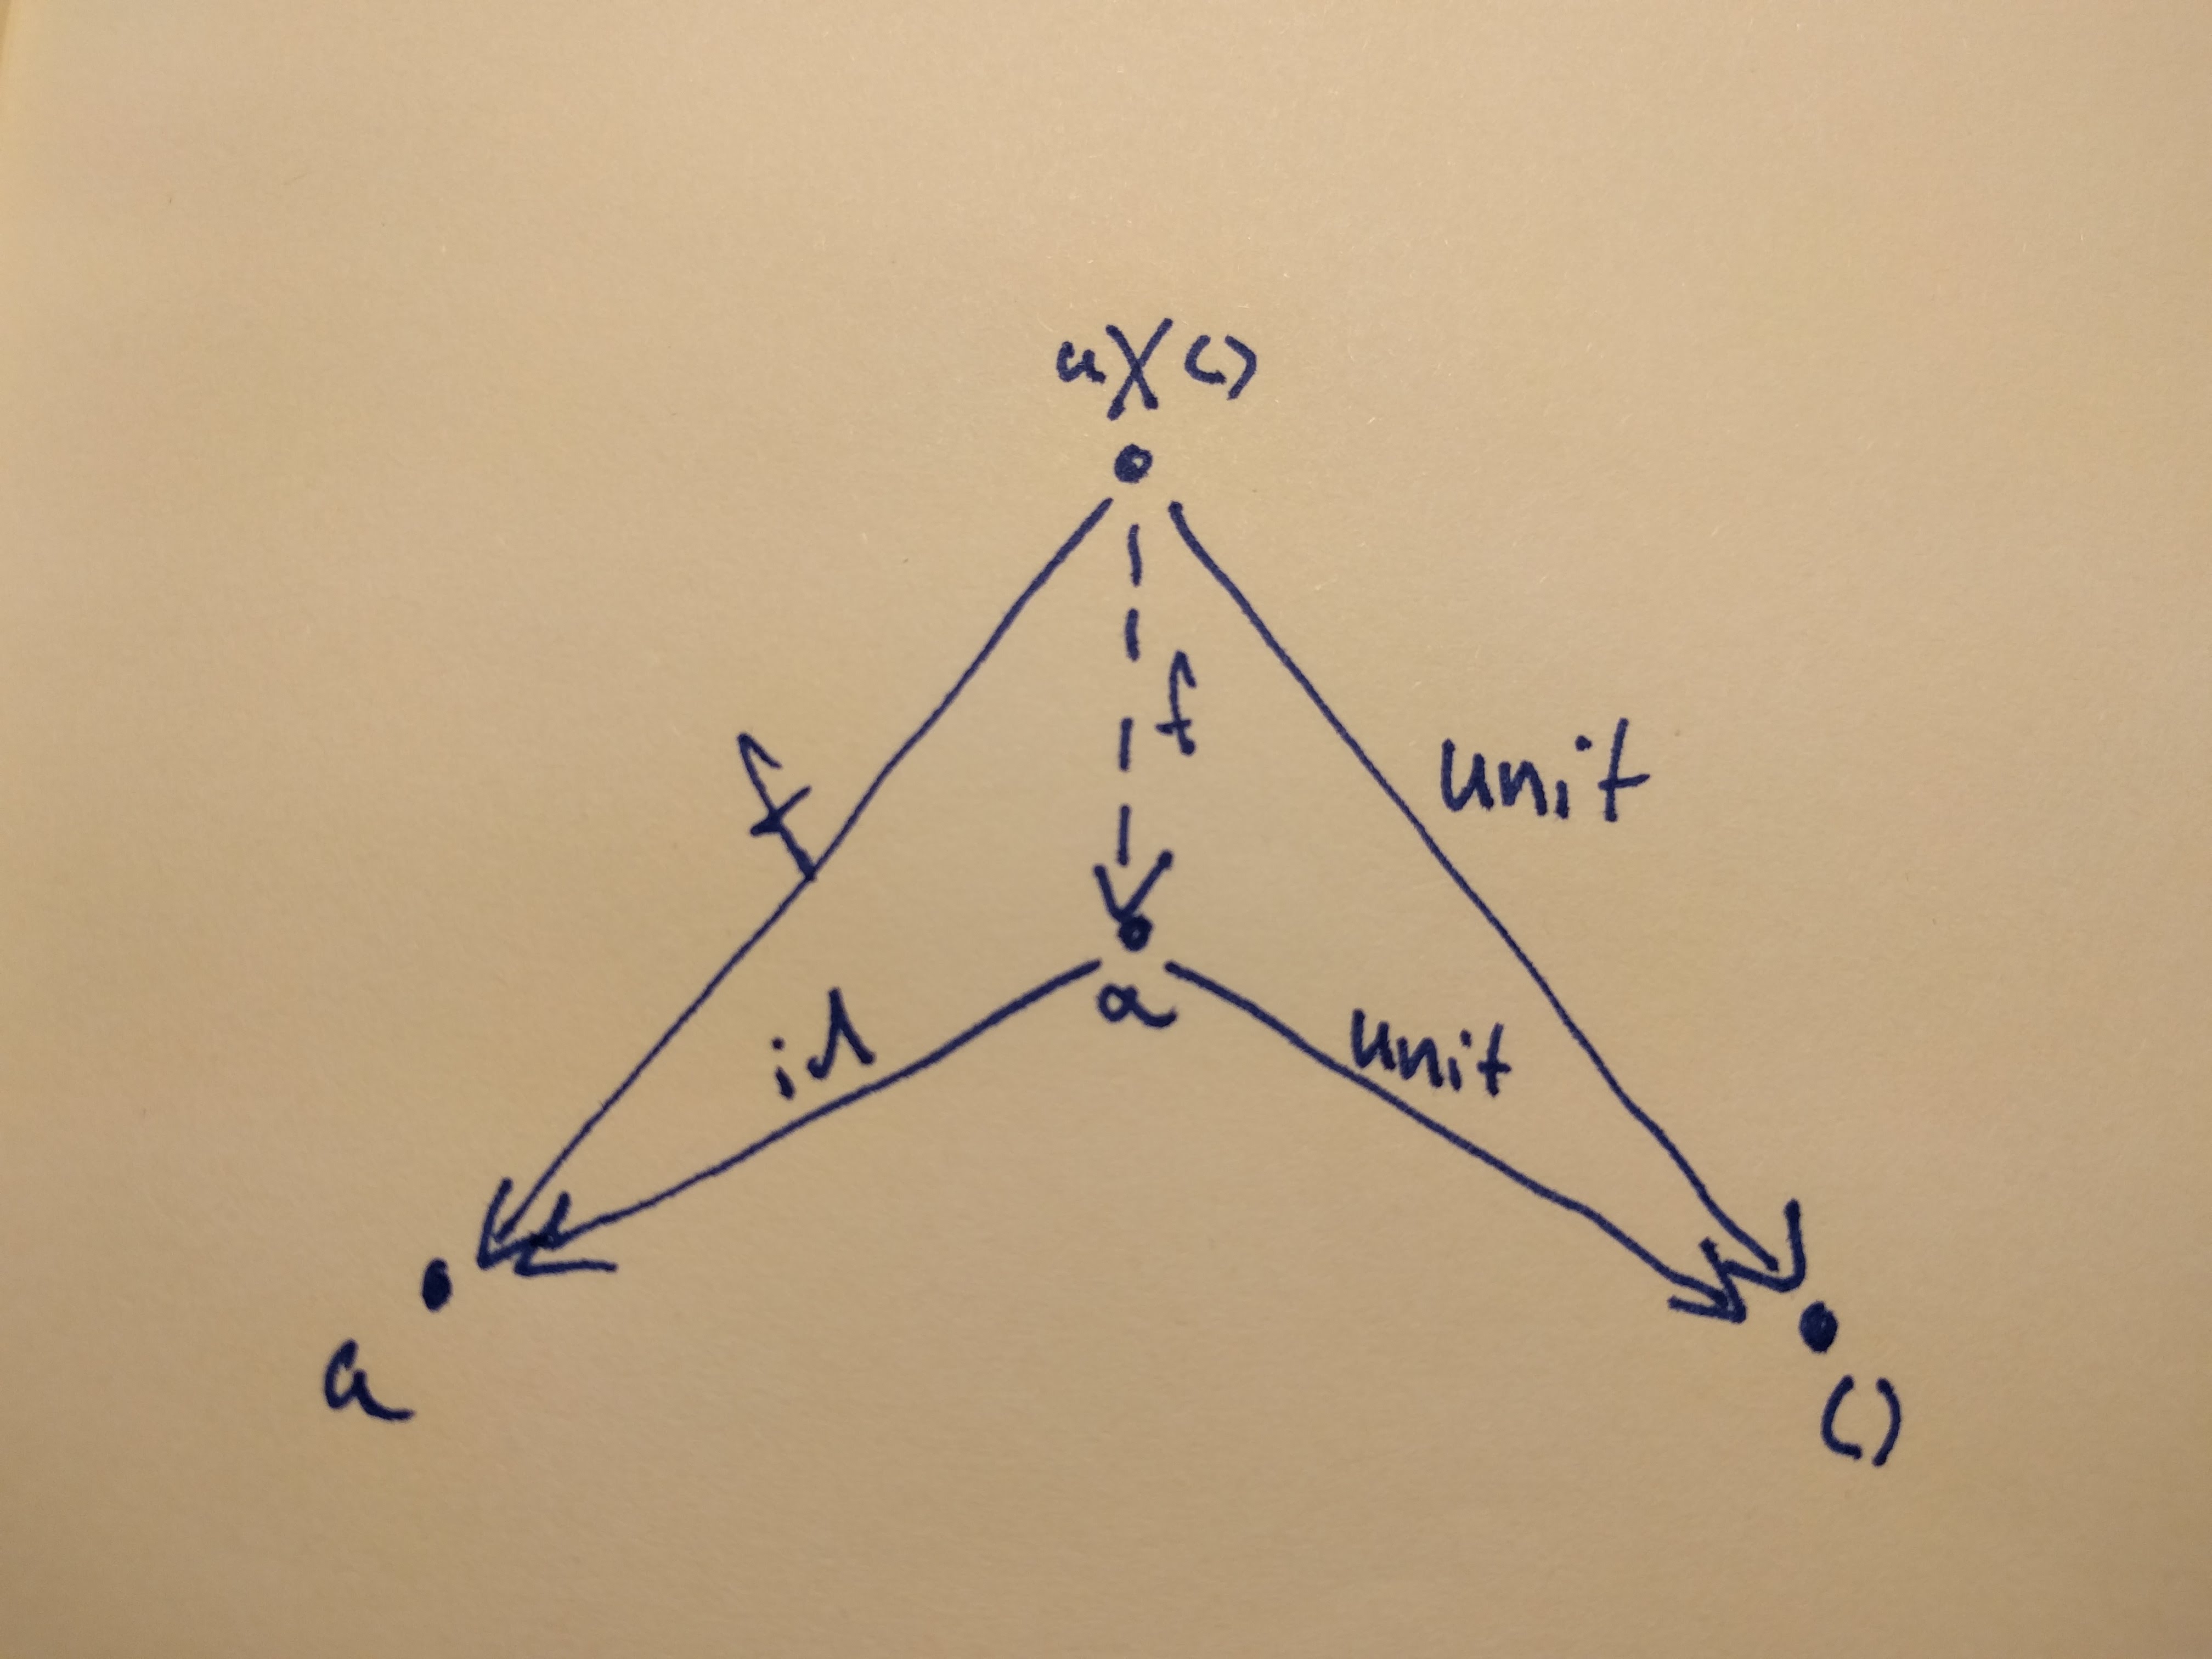 a X ()
f
f
unit
id
a
unit
a
()